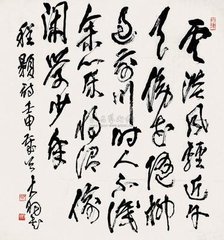 雲淡風輕近午
天傍花隨柳
過前川時人不識
余心樂將謂偷
閑學少年
程顥詩壬申